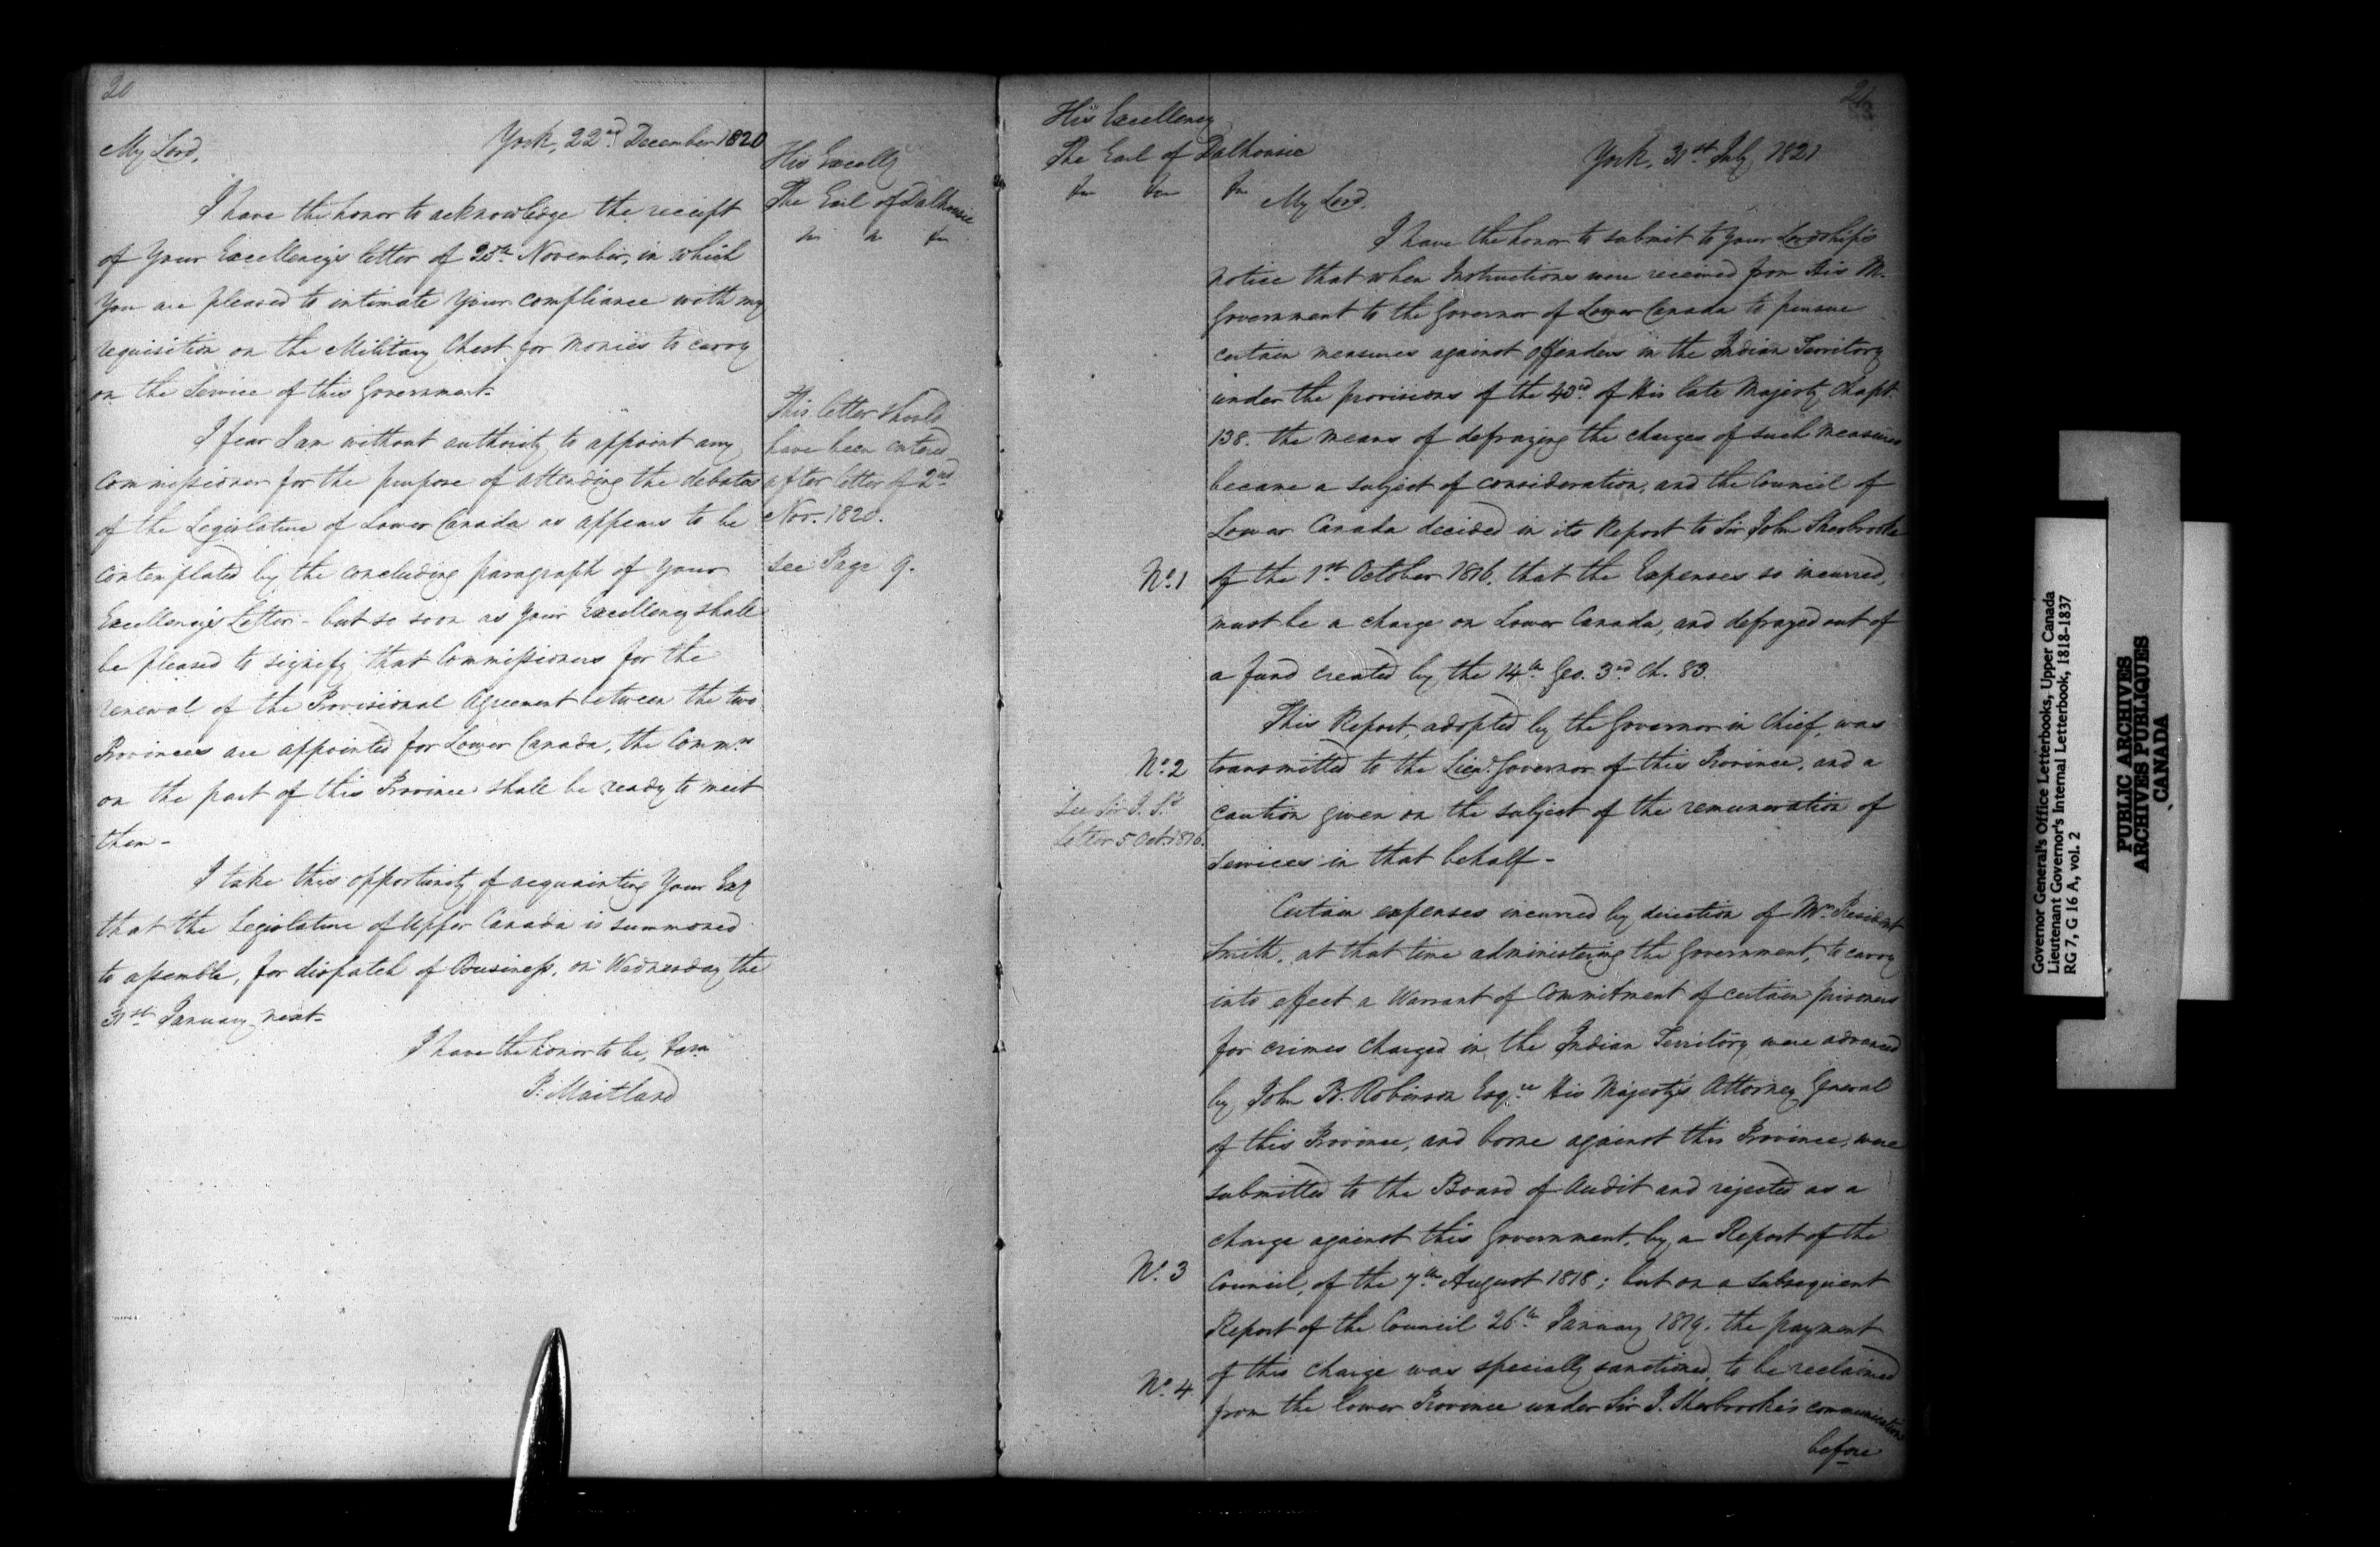 20
York, 22nd December 1820
My Lord,
I have the honor to acknowledge the receipt
of Your Excellency's letter of 25th November, in which
You are pleased to intimate Your compliance with my
requisition on the Military Chest for Monies to carry
on the Service of this Government-
I fear I am without authority to appoint any
Commissioner for the purpose of attending the debates
of the Legislature of Lower Canada as appears to be
contemplated by the concluding paragraph of your
Excellency's Letter - but so soon as Your Excellency shall
be pleased to signify that Commissioners for the
renewal of the Provisional Agreement between the two
Provinces are appointed for Lower Canada, the Commrs
on the part of this Province shall be ready to meet
them -
I take this opportunity of acquainting Your Exy
that the Legislature of Upper Canada is summoned
to assemble, for dispatch of Business, on Wednesday the
31st January next-
I have the honor to be,
P: Maitland
His Excelly
The Earl of Dalhousie
This letter should
have been entered
after letter of 2nd
Nov. 1820.
see Page 9.
21
His Excellency
The Earl of Dalhousie
York, 31st July 1821
My Lord,
I have the honor to submit to Your Lordship's
notice that when Instructions were received from His M.
Government to the Governor of Lower Canada to pursue
certain measures against offenders in the Indian Territory
under the provisions of the 43rd of His late Majesty Chapt.
138. the means of defraying the charges of such measures
became a subject of consideration, and the Council of
Lower Canada decided in its Report to Sir John Sherbrooke
No. 1 of the 1st October 1816. that the Expenses so incurred,
must be a charge on Lower Canada, and defrayed out of
a fund created by the 14th Geo. 3rd Ch. 83.
This Report, adopted by the Governor in Chief, was
No. 2 transmitted to the Lieut. Governor of this Province, and a
See Sir J. S's
Letter 5 Oct. 1816.
caution given on the subject of the remuneration of
services in that behalf -
Certain expenses incurred by direction of Mr. President
Smith, at that time administering the Government, to carry
into effect a Warrant of Commitment of certain prisoners
for crimes charged in the Indian Territory were advanced
by John B. Robinson Esqre His Majesty's Attorney General
of this Province, and borne against this Province, were
submitted to the Board of Audit and rejected as a
charge against this Government, by a Report of the
No. 3 Council, of the 7th August 1818; but on a subsequent
Report of the Council 26th January 1819. the payment
of this charge was specially sanctioned, to be reclaimed
No. 4 from the Lower Province under Sir J. Sherbrooke's communication
before
Governor General's Office Letterbooks, Upper Canada
Lieutenant Governor's Internal Letterbook, 1818-1837
RG 7, G 16 A, vol. 2
PUBLIC ARCHIVES
ARCHIVES PUBLIQUES
CANADA